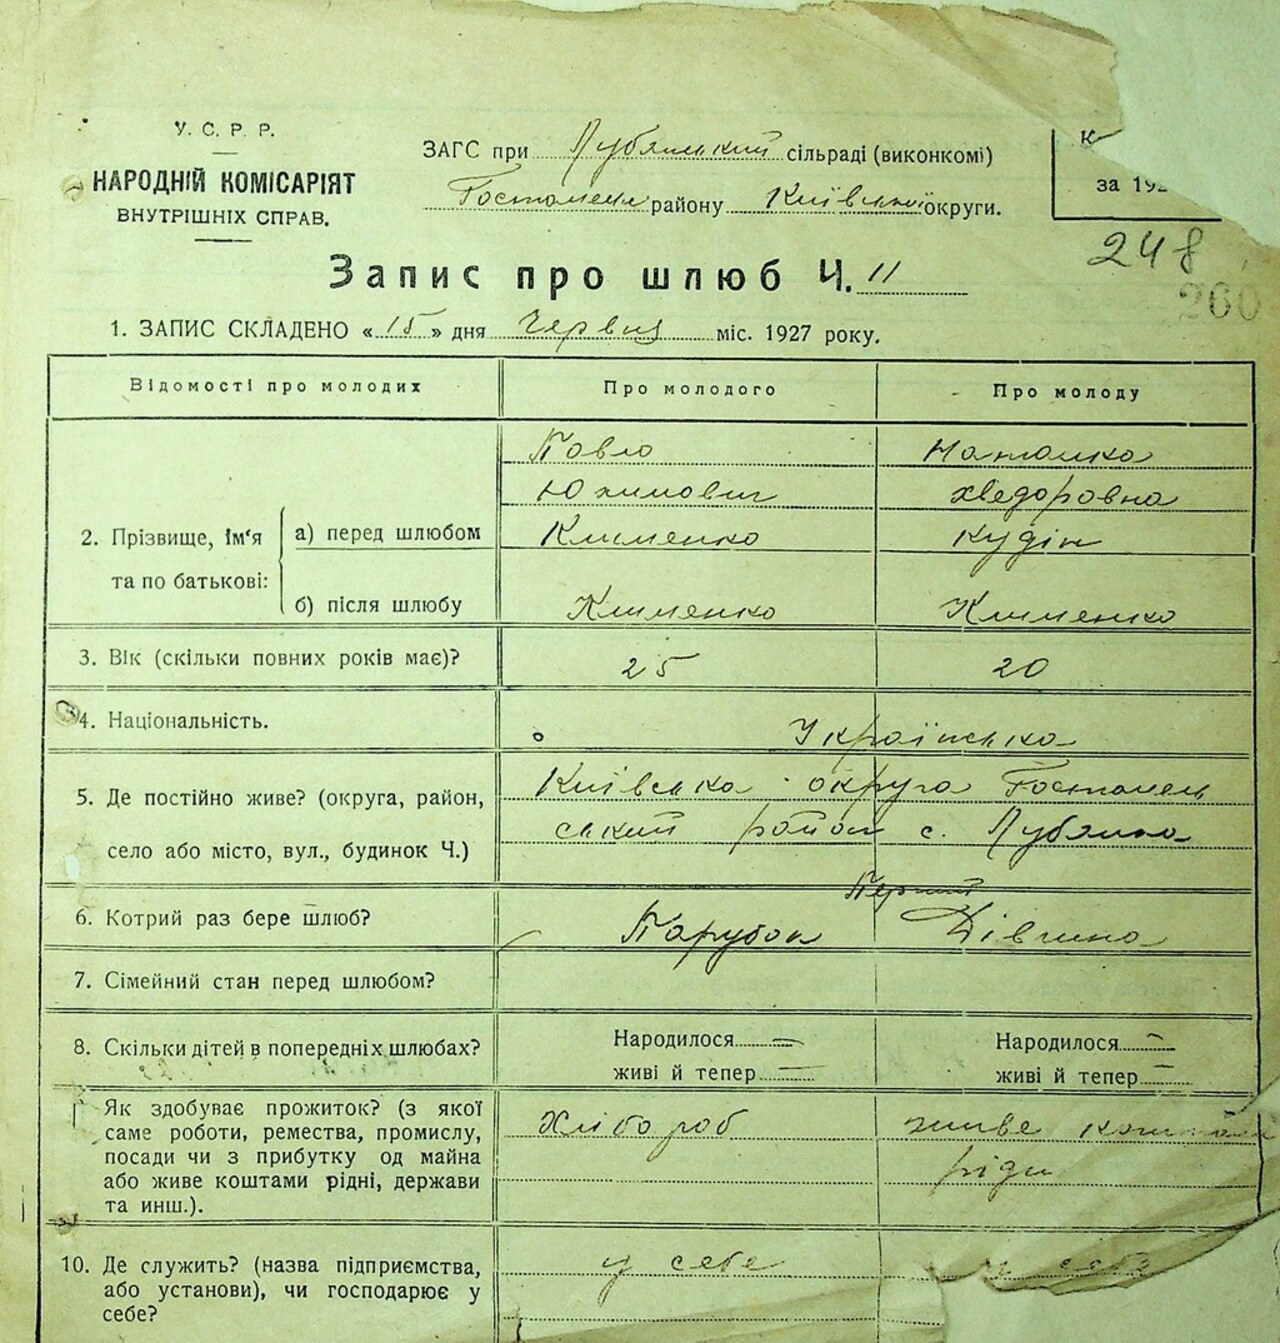 У. С. Р. Р.
НАРОДНІЙ КОМІСАРІЯТ
ВНУТРІШНІХ СПРАВ.
ЗАГС при Лубянський сільраді (виконкомі)
Гостомель району Київськ округи.
К
за 192
248
260
Запис про шлюб Ч. 11
1. ЗАПИС СКЛАДЕНО « 15 » дня Червня міс. 1927 року.
Відомості про молодих Про молодого Про молоду
Павло
Юхимович Хведоровна
2. Прізвище, Ім'я та по батькові: а) перед шлюбом Клименко Кудін
б) після шлюбу Клименко Клименко
3. Вік (скільки повних років має)? 25 20
4. Національність. Українська
5. Де постійно живе? (округа, район, Київська округа Гостомель
село або місто, вул., будинок Ч.) ський район с. Лубянка
Перший
6. Котрий раз бере шлюб? Парубок Дівчина
7. Сімейний стан перед шлюбом?
8. Скільки дітей в попередніх шлюбах? Народилося — Народилося —
живі й тепер — живі й тепер —
Як здобуває прожиток? (з якої Хлібороб живе
саме роботи, ремества, промислу,
посади чи з прибутку од майна рідн
або живе коштами рідні, держави
та инш.).
10. Де служить? (назва підприємства, у себе у себе
або установи), чи господарює у
себе?